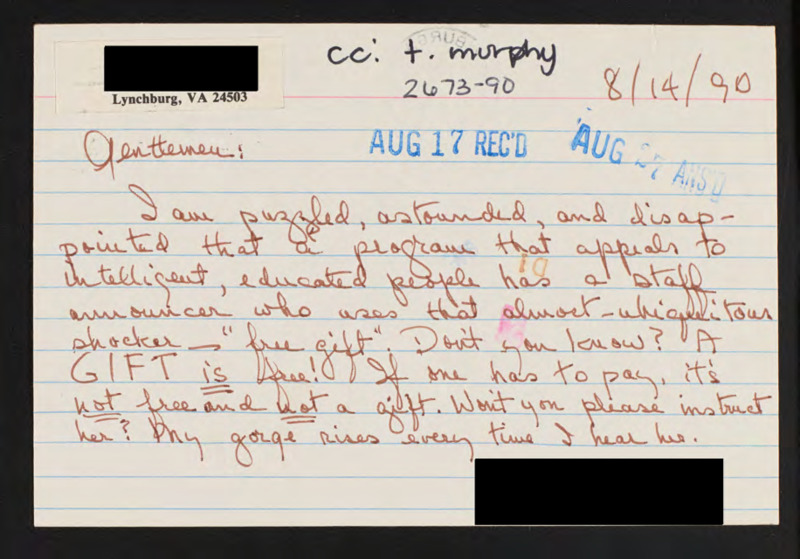 cc: t. murphy
2673-90
8/14/90
Lynchburg, VA 24503
AUG 17 REC'D
AUG 27 ANS'D
Gentlemen:
I am puzzled, astounded, and disap-
pointed that a program that appeals to
intelligent, educated people has a staff
announcer who uses that almost-ubiquitous
shocker — "free gift". Don't you know? A
GIFT is free! If one has to pay, it's
not free and not a gift. Won't you please instruct
her? My gorge rises every time I hear her.